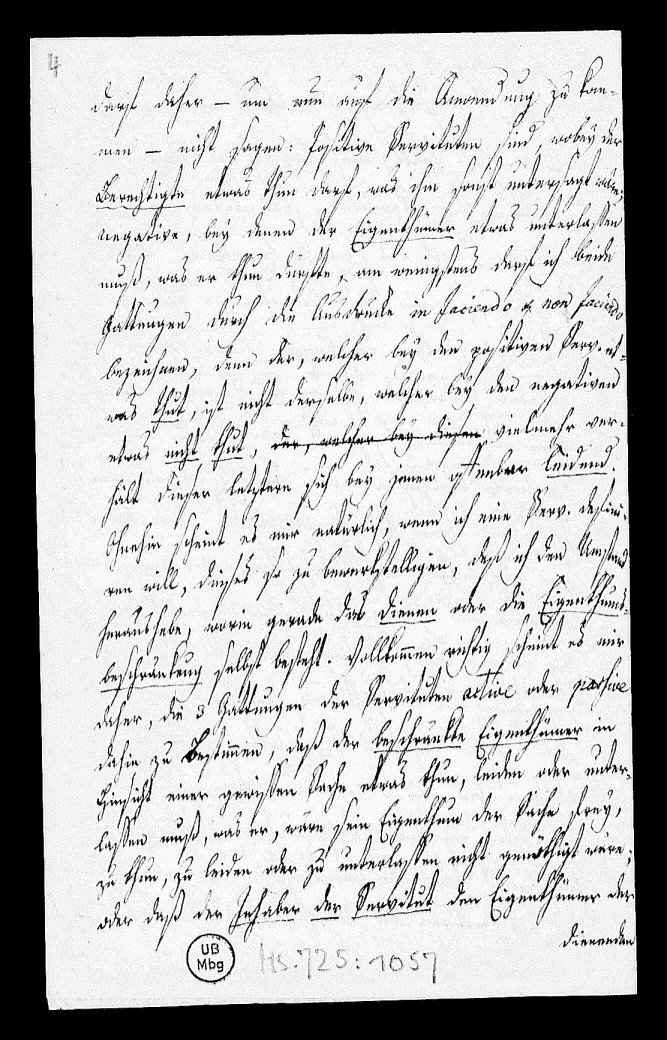 4
darf daher — um nun auf die Anwendung zu kom-
men — nicht sagen: Positive Servituten sind, wobey der
Berechtigte etwas thun darf, was ihm sonst untersagt wäre;
negative, bey denen der Eigenthümer etwas unterlassen
muß, was er thun dürfte, am wenigstens darf ich beide
Gattungen durch die Ausdrücke in faciendo & non faciendo
bezeichnen, denn der, welcher bey den positiven Serv. et-
was thut, ist nicht derselbe, welcher bey den negativen
etwas nicht thut, der, welcher bey diesen vielmehr ver-
hält dieser letztere sich bey jenen offenbar leidend.
Ohnehin scheint es mir natürlich, wenn ich eine Serv. defini-
ren will, dieses so zu bewerkstelligen, daß ich den Umstand
heraushebe, worin gerade das dienen oder die Eigenthums-
beschränkung selbst besteht. Vollkommen richtig scheint es mir
daher, die 3 Gattungen der Servituten active oder passive
dahin zu Bestimmen, daß der beschränkte Eigenthümer in
Hinsicht einer gewissen Sache etwas thun, leiden oder unter-
lassen muß, was er, wäre sein Eigenthum der Sache frey,
zu thun, zu leiden oder zu unterlassen nicht genöthigt wäre;
oder daß der Inhaber der Servitut den Eigenthümer der
dienenden
UB
Mbg
Hs. 725:1057